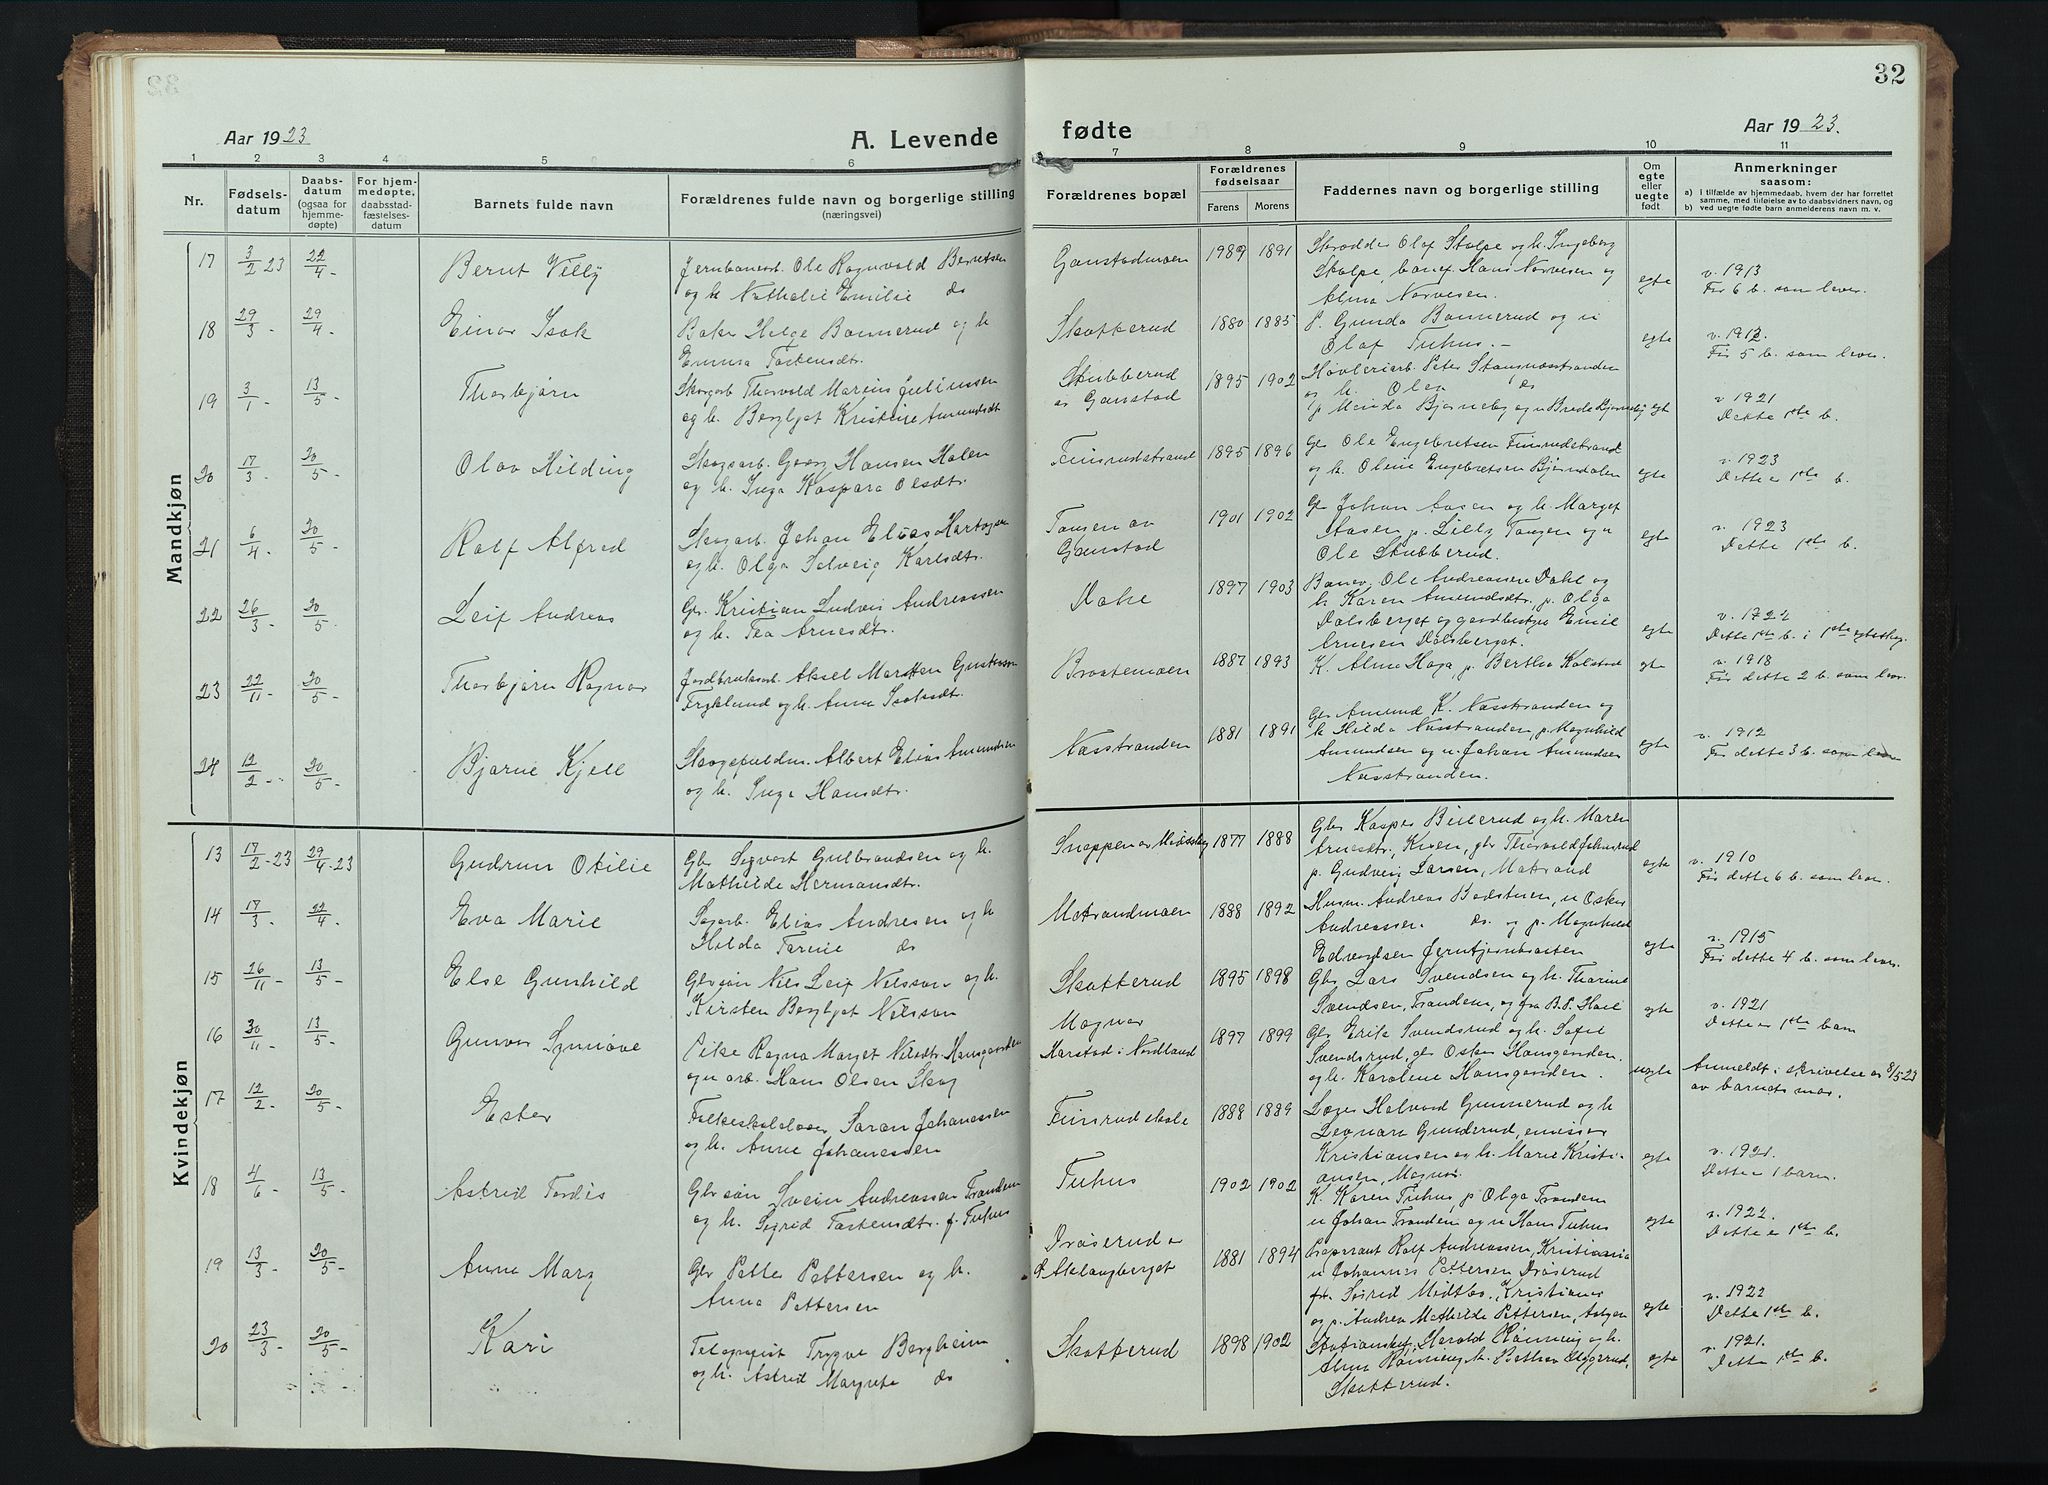 32
Aar 1923
A. Levende fødte
Aar 1923.
1 2 3 4 5 6 7 8 9 10 11
Nr.
Fødselsdatum
Daabsdatum (ogsaa for hjemmedøpte)
For hjemmedøpte, daabsstadfæstelsesdatum
Barnets fulde navn
Forældrenes fulde navn og borgerlige stilling (næringsvei)
Forældrenes bopæl
Forældrenes fødselsaar
Farens Morens
Faddernes navn og borgerlige stilling
Om egte eller uegte født
Anmerkninger saasom:
a) I tilfælde av hjemmedaab, hvem der har forrettet samme, med tilføielse av to daabsvidners navn, og
b) ved uegte fødte barn anmelderens navn m. v.
Mandkjøn
17 3/2 23 22/4- Bernt Villy
Jernbanearb. Ole Ragnvald Berntsen
og h. Nathalie Emilie do
Ganstadmoen 1989 1891
Skrædder Olaf Stolpe og h. Ingeborg
Stolpe, banef. Hans Norvesen og
Alma Norvesen.
egte
v. 1913
Før 6 b. som lever.
18 29/3- 29/4- Einar Isak
Baker Helge Bonnerud og h
Emma Torstensdtr.
Skotterud 1880 1885
P. Gunda Bonnerud og u
Olaf Tuhus.-
egte
v. 1912.
Før 5 b. som lever.
19 3/1- 13/5- Thorbjørn
Skogarb Thorvald Marius Juliussen
og h. Bergljot Kristine Amundsdt
Skubberud
av Ganstad 1895 1902
Høvleriarb. Peter Stangnæsstranden
og h. Olea do
p Menda Bjørneby og u Brede Bjørneby
egte
v 1921
Dette 1ste b.
20 17/3- 20/5- Olav Hilding
Skogsarb. Georg Hansen Holen
og h. Inga Kaspara Olsdtr.
Feinsrudstrand 1895 1896
Gr Ole Engebretsen Finsrudstrand
og h. Oline Engebretsen Bjørndalen
egte
v. 1923
Dette e 1ste b.
21 6/4- 20/5- Rolf Alfred
Skogarb. Johan Elias Hartvigsen
og h. Olga Solveig Karlsdtr.
Tangen av
Ganstad 1901 1902
Gr Johan Aasen og h. Marget
Aasen, p. Lilly Tangen og u
Ole Skubberud.
egte
v. 1923
Dette 1ste b.
22 26/3- 20/5- Leif Andreas
Gbr. Kristian Ludvig Andreassen
og h. Tea Arnesdtr.
Dahl 1897 1903
Banev. Ole Andreassen Dahl og
h Karen Amundsdtr, p. Olga
Dalsberget og gaardbestyrer Emil
Arnesen Dalsberget.
egte
v. 1922
Dette 1ste b. i 1ste egtesk.
23 22/11- 20/5- Thorbjørn Ragnar
Jordbruksarb. Aksel Morten Gustavson
Fryklund og h. Anna Isaksdtr.
Brostemoen 1887 1893
K. Alma Haga, p. Bertha Kolstad
egte
v. 1918
Før dette 2 b. som lever.
24 12/2- 20/5- Bjarne Kjell
Skogsfuldm. Albert Elias Amundsen
og h. Inga Hansdtr.
Næsstranden 1881 1891
Gbr. Amund K. Næsstranden og
h Hilda Næsstranden, p. Magnhild
Amundsen og u. Johan Amundsen
Næsstranden.
egte
v. 1912
Før dette 3 b. som lever
Kvindekjøn
13 17/2-23 29/4-23 Gudrun Otilie
Gbr Sigvart Gulbrandsen og h.
Mathilde Hermansdtr.
Snoppen av Midtskog 1877 1888
Gbr Kasper Beilerud og h. Maren
Arnesdtr, Kroen, gbr Thorvald Johnsrud
p. Gudveig Larsen, Matrand
egte
v. 1910
Før dette 6 b. som lever.
14 17/3- 22/4- Eva Marie
Sagarb. Elias Andresen og h
Hilda Tarine do
Matrandmoen 1888 1892
Husm. Andreas Badstuen, u Oskar
Andreassen do og p. Magnhild
Edvardsen Jerntjernbraaten
egte
v. 1915
Før dette 4 b. som lever.
15 26/11- 13/5- Else Gunhild
Gbr søn Nils Leif Nilsson og h.
Kirsten Bergljot Nilsson
Skotterud 1895 1898
Gbr Lars Svendsen og h. Tharine
Svendsen, Tranden, og fra B.P. Hoel
egte
v. 1921
Dette e 1ste barn
16 30/11- 13/5- Gunvor Synnøve
Pike Ragna Marget Nilsdtr. Hansgarden
og u arb. Hans Olsen Skog
Magnor
Karstad i Nordland 1897 1899
Gbr Erik Svendsrud og h. Sofie
Svendsrud, gbr Oskar Hansgarden
og h. Karoline Hansgarden.
uegte
Anmeldt i skrivelse av 8/5 23
av barnets mor.
17 12/2- 20/5- Ester
Folkeskolelærer Søren Johanessen
og h. Anne Johanessen
Finsrud skole 1888 1889
Læge Halvord Gunnerud og h
Leonar Gunderud, emissær
Kristiansen og h. Marie Kristi-
ansen, Magnor.
egte
v. 1921.
Dette e 1 barn.
18 4/6- 13/5- Astrid Tordis
Gbr søn Svein Andreassen Tranden
og h. Sigrid Torstensdtr. f. Tuhus
Tuhus 1902 1902
K. Karen Tuhus, p Olga Tranden
u Johan Tranden og u Hans Tuhus
egte
v. 1922.
Dette e 1ste b.
19 13/3- 20/5- Anne Mary
Gbr Petter Pettersen og h.
Anna Pettersen
Drøiserud av
Aklangberget 1881 1894
Præparant Rolf Andreassen, Kristiania
u Johannes Pettersen Drøiserud
frk. Sigrid Midtbø, Kristiania
og p. Andrea Mathilde Pettersen,
egte
v. 1922
Dette 1ste b.
20 23/3- 20/5- Kari
Telegrafist Trygve Bergheim
og h. Astrid Margrete do
Skotterud 1898 1902
Harald Rønning og h.
Alma Rønning, h. Berthea Aggerud,
Skotterud.
egte
v. 1921.
Dette 1ste b.